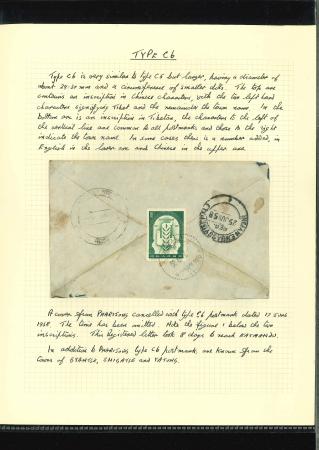 TYPE C6
Type C6 is very similar to type C5 but larger, having a diameter of
about 29-30 mm and a circumference of smaller dots. The top arc
contains an inscription in Chinese characters, with the two left hand
characters signifying Tibet and the remainder the town name. In the
bottom arc is an inscription in Tibetan, the characters to the left of
the vertical line are common to all postmarks and those to the right
indicate the town name. In some cases there is a number added, in
English in the lower arc and Chinese in the upper arc.
25 JUN 58
A cover from PHARIJONG cancelled with type C6 postmark dated 17 JUNE
1958. The time has been omitted. Note the figure 1 below the two
inscriptions. This registered letter took 8 days to reach KATMANDU.
In addition to PHARIJONG type C6 postmarks are known from the
towns of GYANTSE, SHIGATSE and YATUNG.